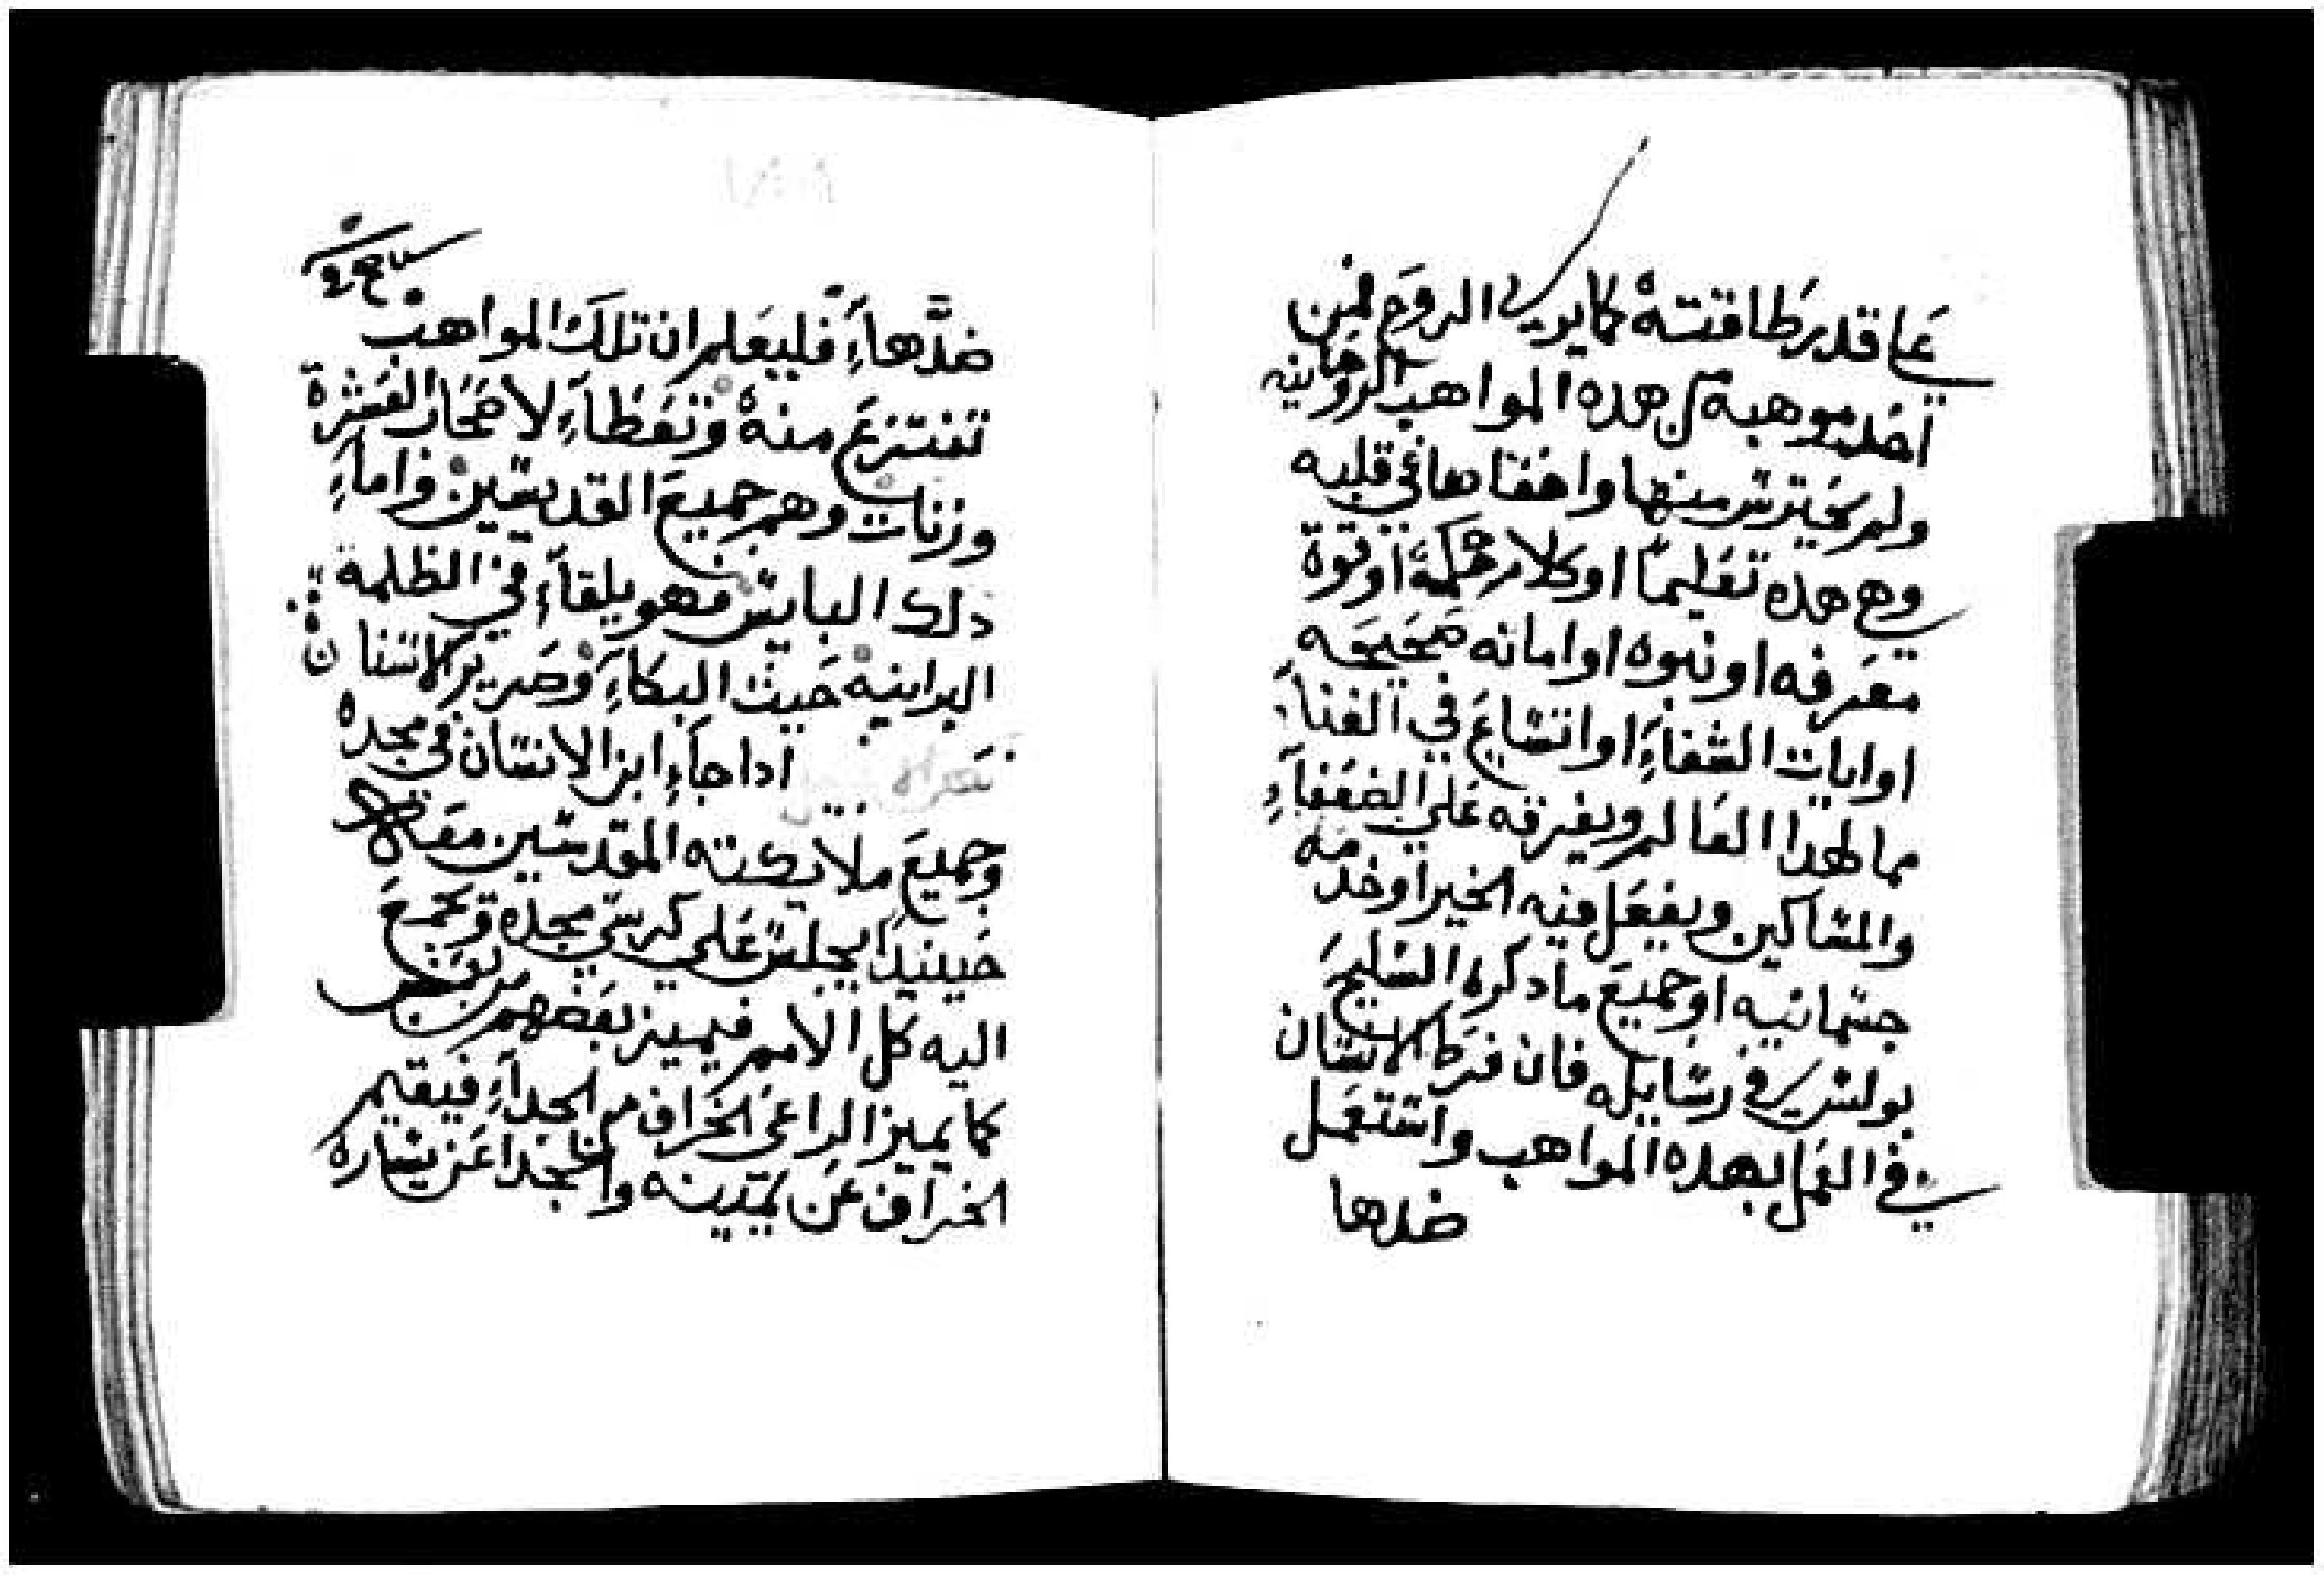 علي قدر طاقته كما يريد الروح فمن
اخد موهبة من هده المواهب الروحانيه
ولم يحترس منها واخفاها في قلبه
وهي هده تعليما او كلام حكمة او قوة
معرفه او نبوه او امانه صحيحه
او ايات الشفاء او اتساع في الغناء
مما لهدا العالم ويفرقه علي الضعفاء
والمساكين ويفعل فيه الخير او خدمه
جسمانيه او جميع ما دكره السليح
بولس في رسايله فان فرط الانسان
في العمل بهده المواهب واستعمل
ضدها
ضدها فليعلم ان تلك المواهب
تنتزع منه وتعطاء لاصحاب العشرة
وزنات وهم جميع القديسين واماء
دلك البايس فهو يلقاء في الظلمة
البرانيه حيث البكاء وصرير الاسنان
اداجاء ابن الانسان في مجده
وجميع ملايكته المقدسين معه
حينيدا يجلس علي كرسي مجده وتجمع
اليه كل الامم فيميز بعضهم من بعض
كما يميز الراعي الخراف من الجداء فيقيم
الخراف عن يمينه والجدا عن يساره